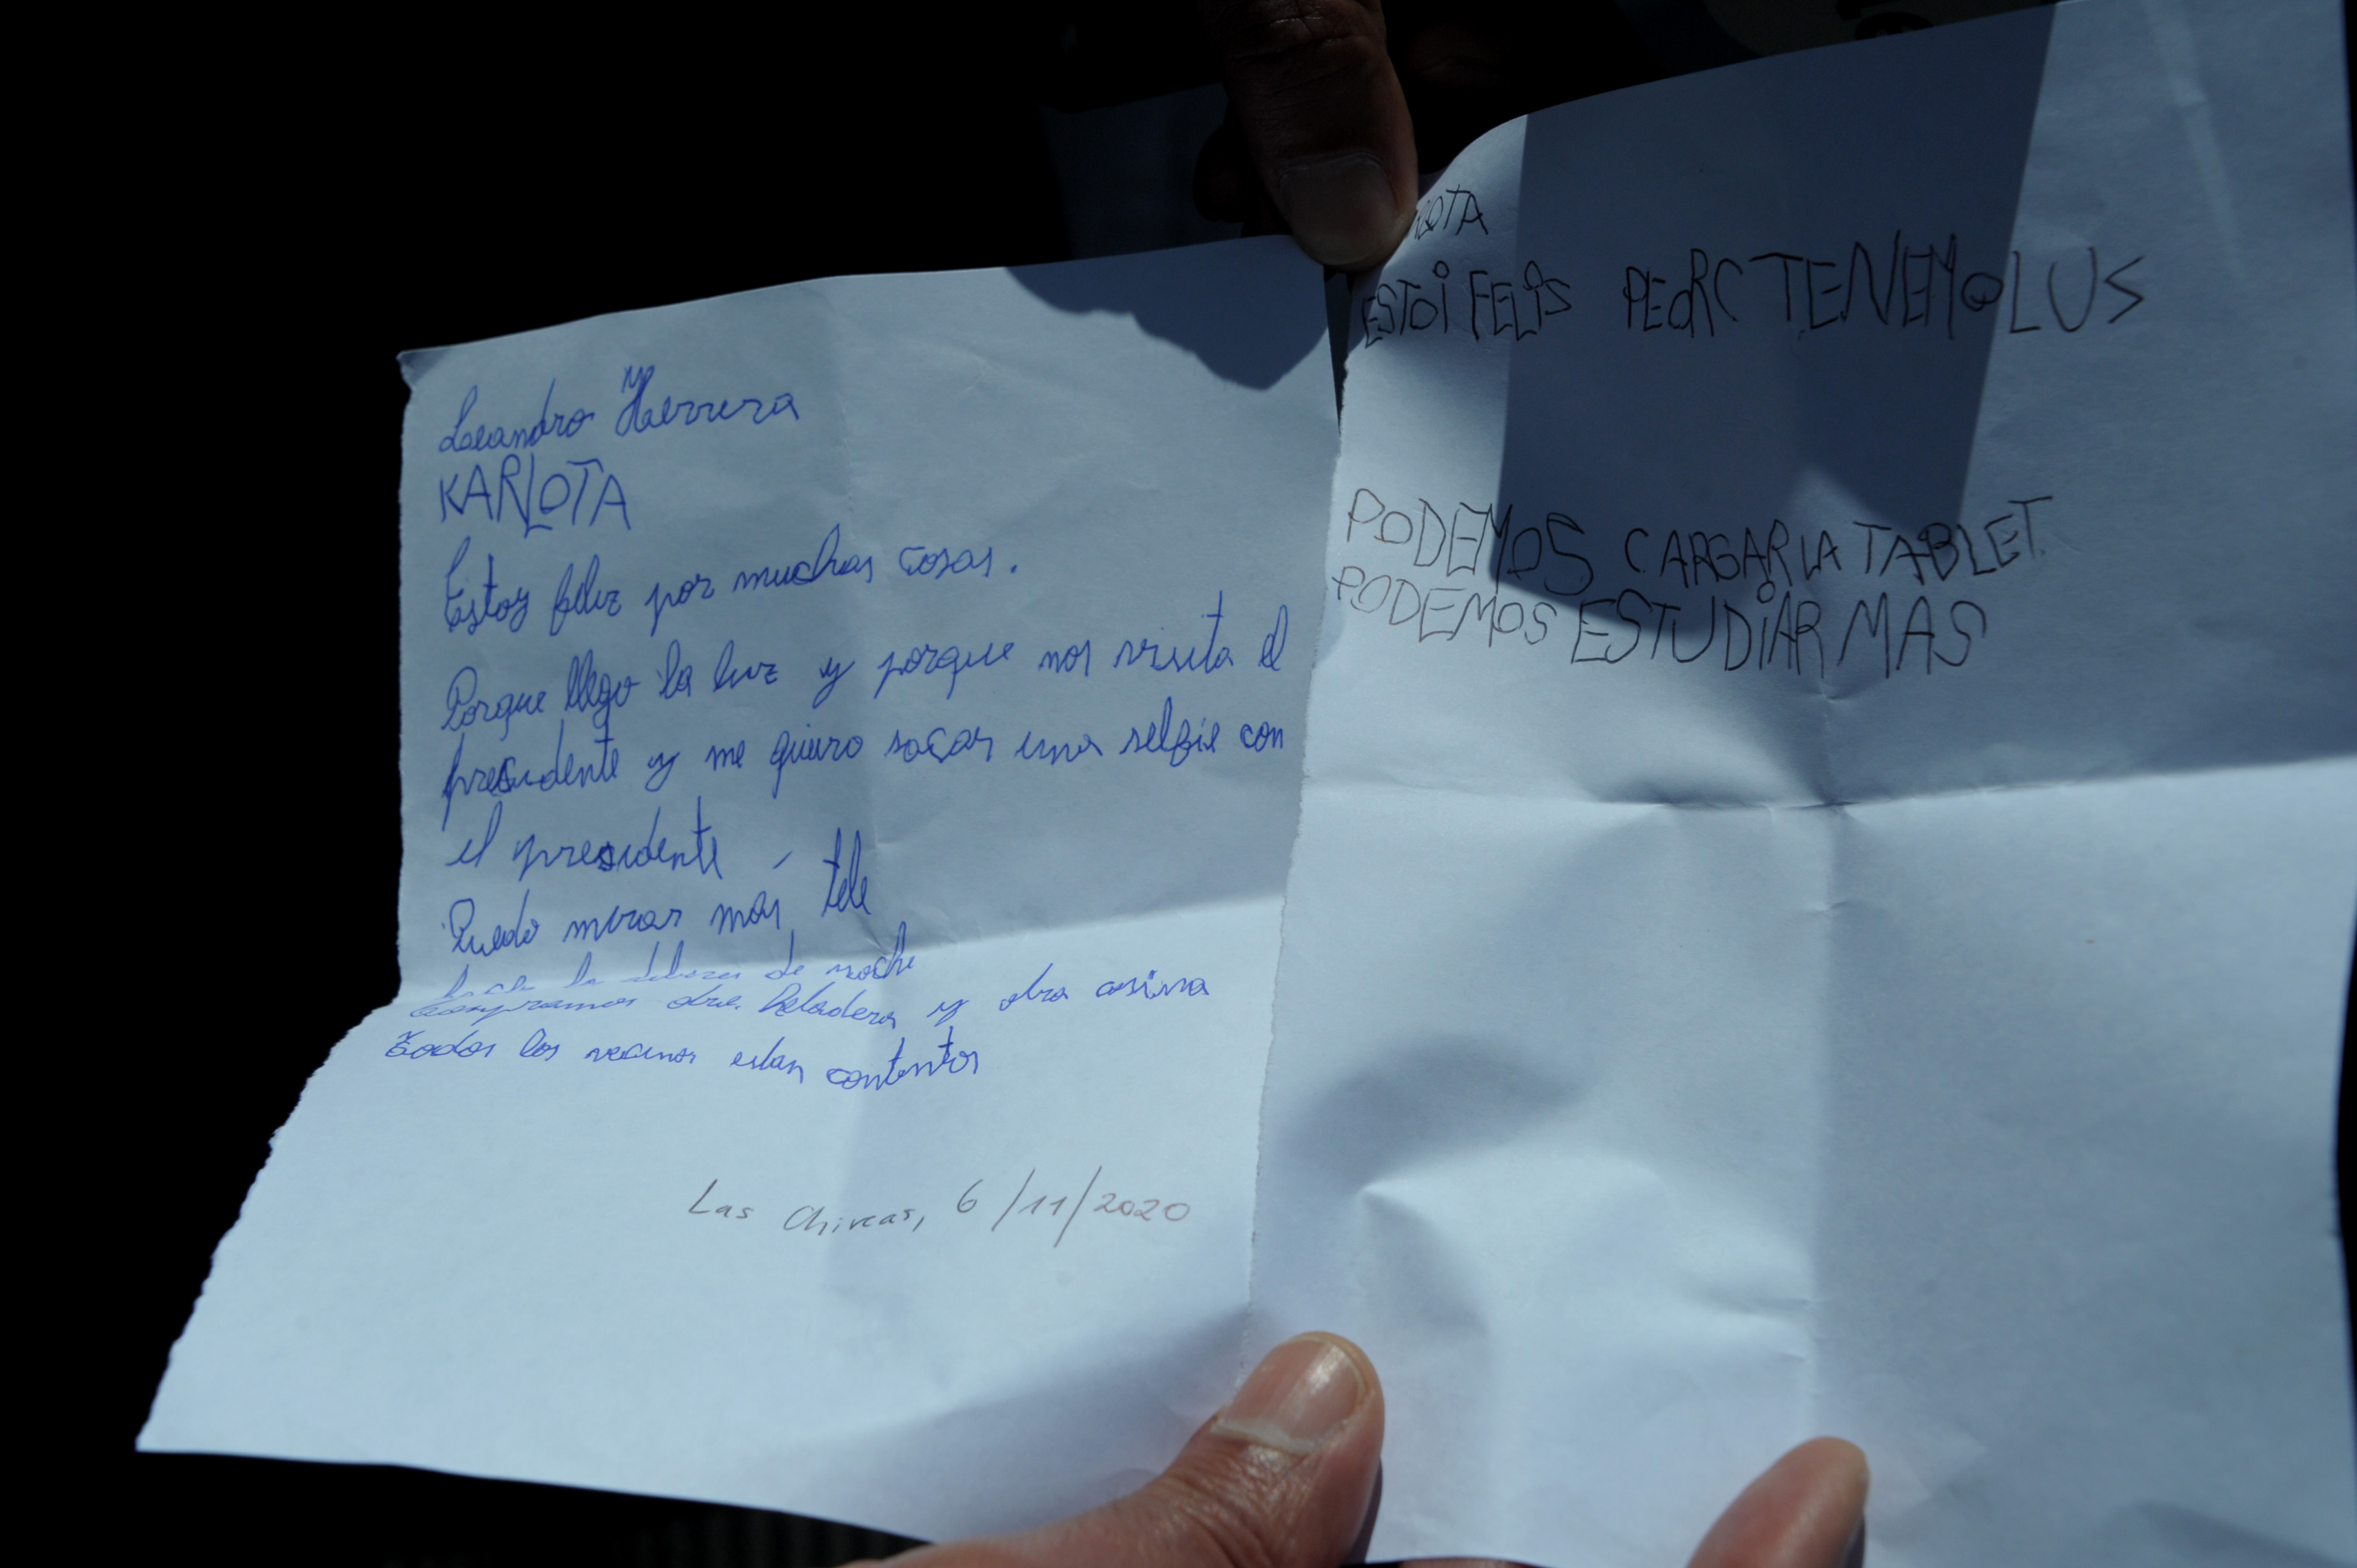 Leandro Herrera
KARLOTA
Estoy feliz por muchas cosas.
Porque llego la luz y porque nos visita el
presidente y me quiero sacar una selfie con
el presidente
Puedo mirar más tele
la de noche
Compramos otra heladera y otra cosina
Todos los vecinos estan contentos
Las Chircas, 6/11/2020
LOTA
ESTOi FELiS PEORC TENEMO LUS
PODEMOS CARGAR LA TABLET.
PODEMOS ESTUDiAR MAS